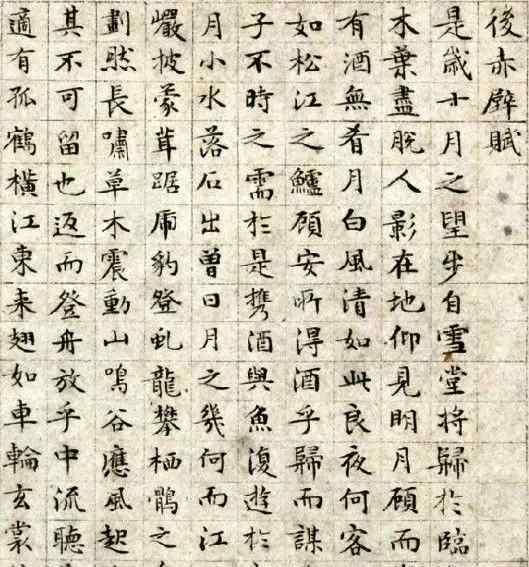 後赤壁賦
是歲十月之望步自雪堂將歸於臨
木葉盡脫人影在地仰見明月顧而
有酒無肴月白風清如此良夜何客
如松江之鱸顧安所得酒乎歸而謀
子不時之需於是携酒與魚復遊於
月小水落石出曾日月之幾何而江
巖披蒙茸踞虎豹登虬龍攀栖鶻之
劃然長嘯草木震動山鳴谷應風起
其不可留也返而登舟放乎中流聽
適有孤鶴橫江東来翅如車輪玄裳